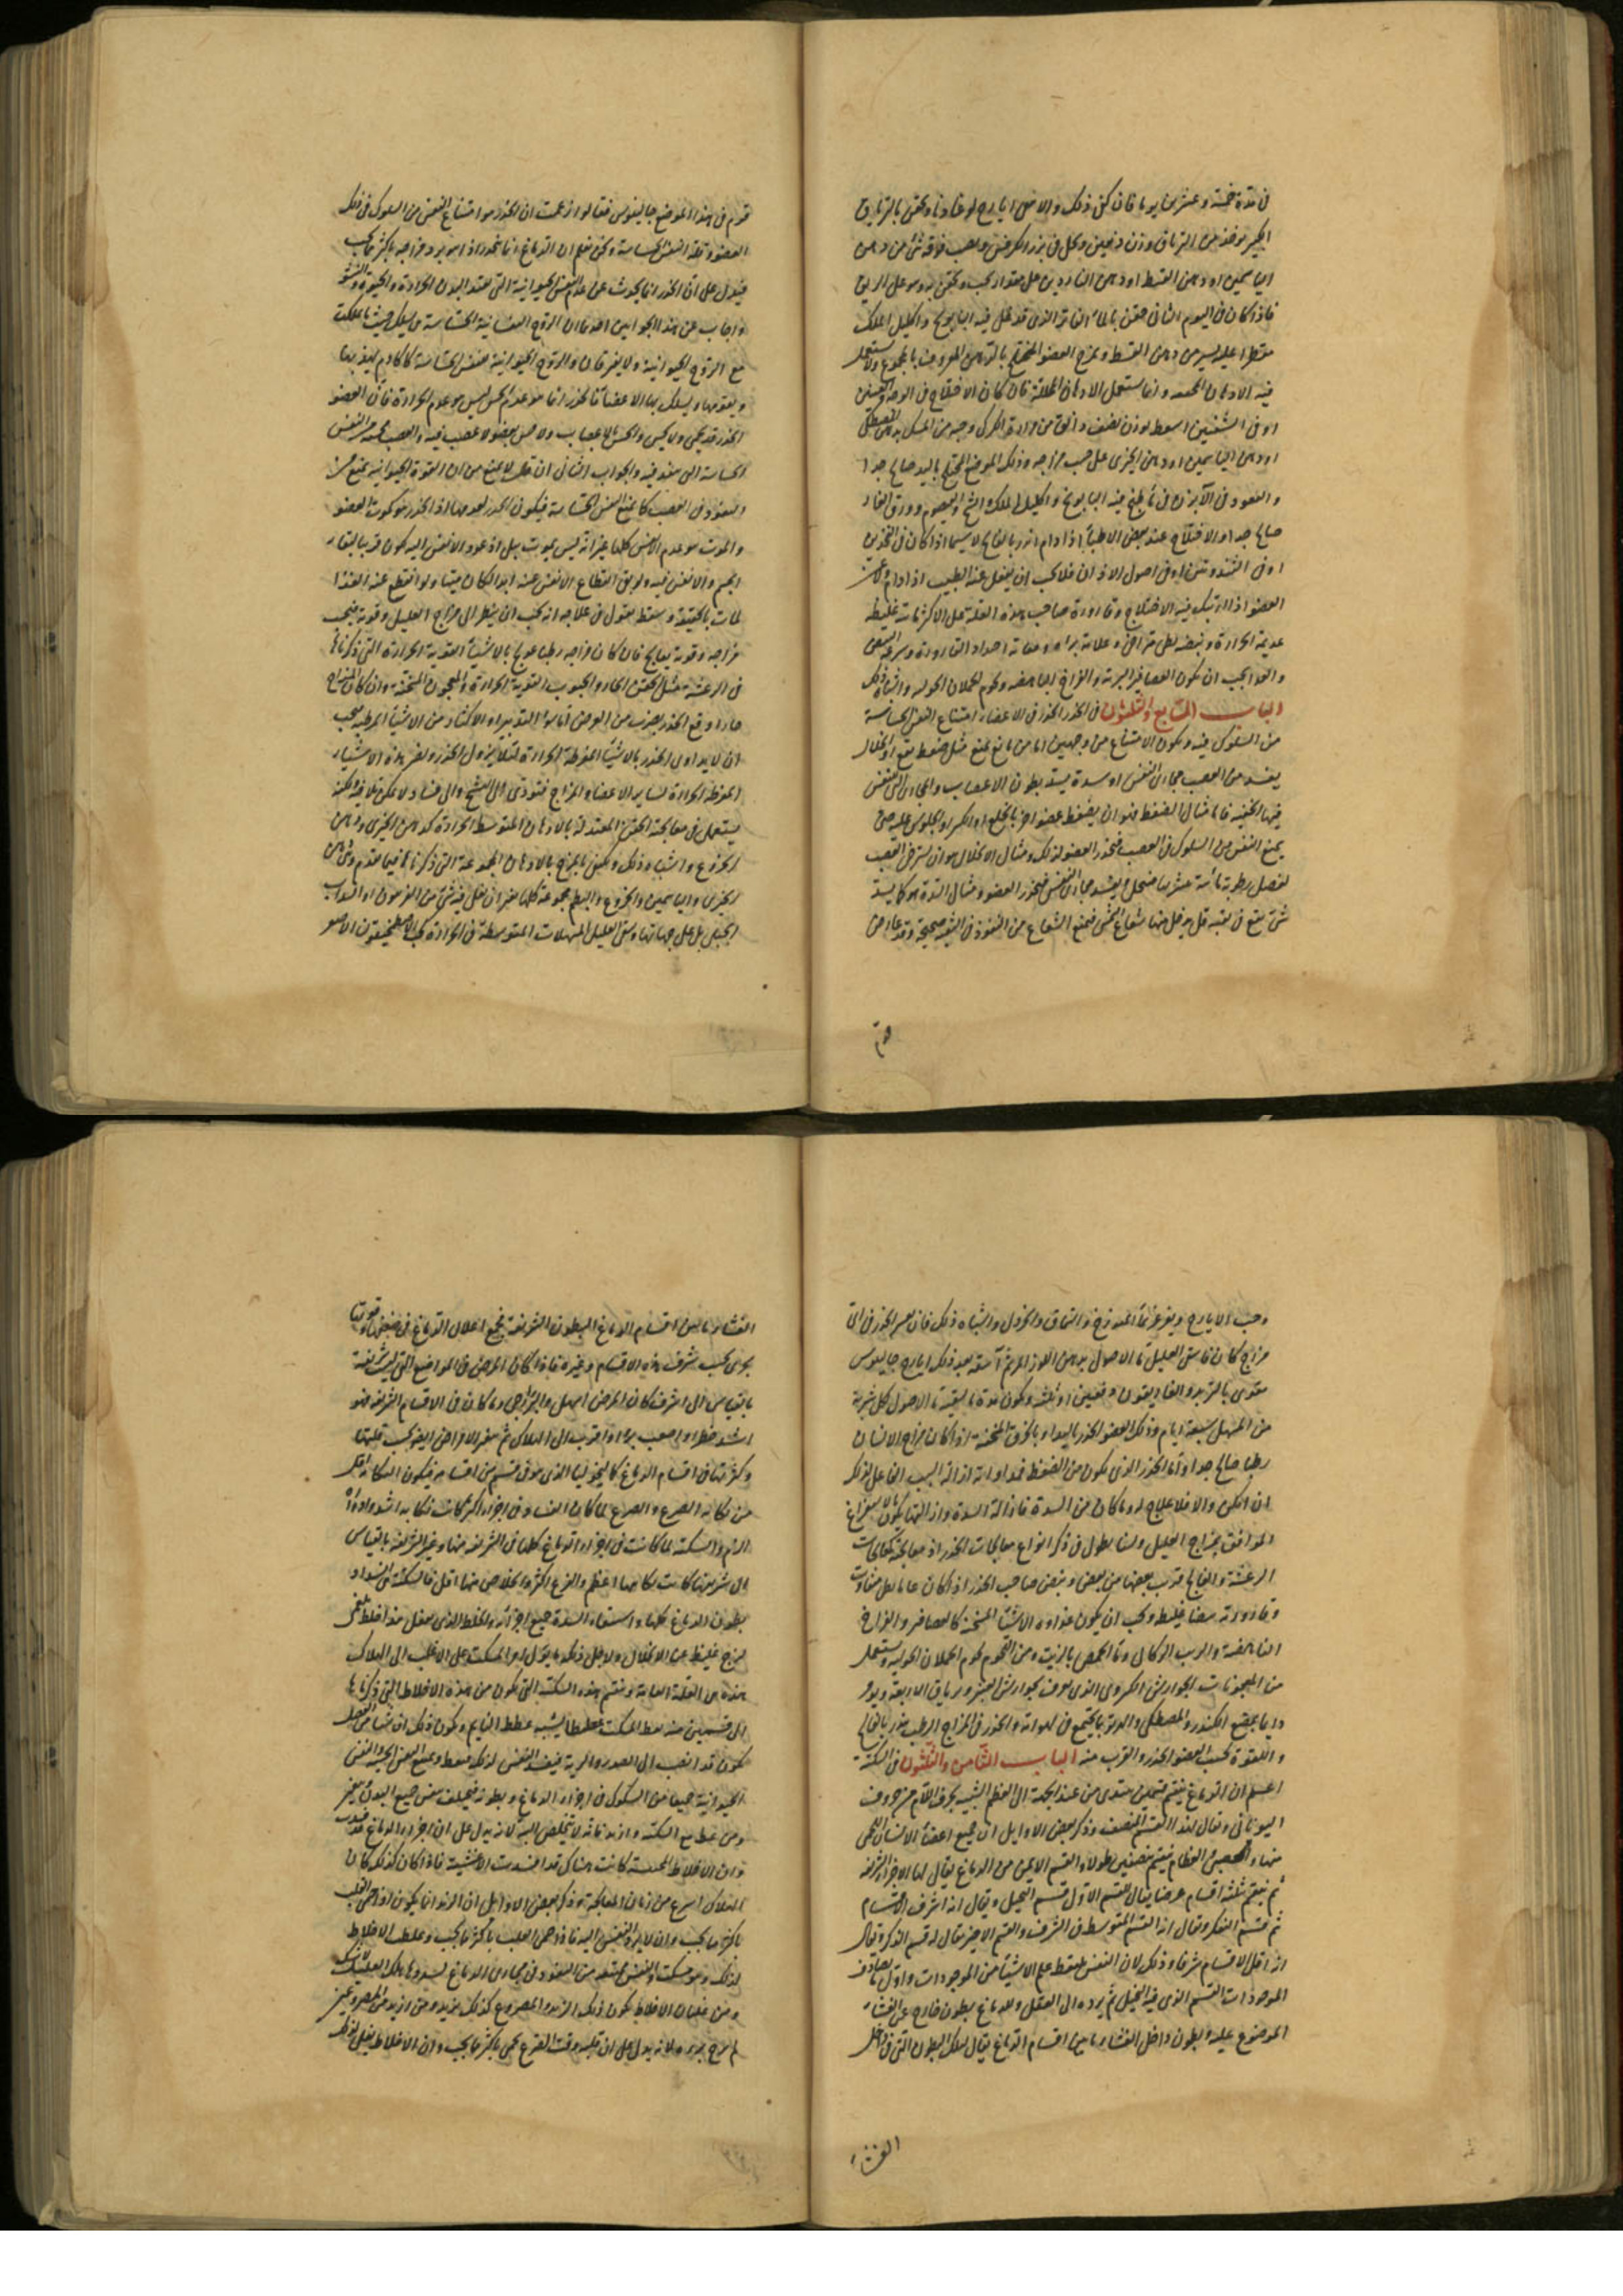 في مدة خمسة وعشرين يوما فان كفى ذلك والا فمن ايارج لوغاديا ويحقن بالترياق
الكبير يوخذ من الترياق وزن دانقين ويحل في بزر الكرفس ويصب فوقه شئ من دهن
الياسمين او دهن القسط او دهن الناردين على مقدار يجب ويحقن به وهو على الريق
فاذا كان في اليوم الثاني حقن بالماء الفاتر الذي قد غلى فيه البابونج واكليل الملك
مقطرا عليه يسير من دهن القسط ويمرخ العضو المختلج بالدهن المعروف بالمجموع ولا يستعمل
فيه الادهان وانما يستعمل الادهان المحللة فان كان الاختلاج في الوجه والعينين
او في الشفتين اسعط بوزن نصف دانق من مرارة الكركي وحبه من المسك بدهن المصطكى
او دهن الياسمين او دهن الخيرى على حسب مزاجه وذلك الموضع المختلج باليد صالح جدا
والقعود في الآبزن في ماء طبخ فيه البابونج واكليل الملك والشيح والقيصوم وورق الغار
صالح جدا والاختلاج عند بعض الاطباء اذا دام انذر بالفالج لا سيما اذا كان في الخدين
او في او في اصول الاذان فلا يجب ان يغفل عنه الطبيب اذا دام
العضو اذا ارتبك فيه الاختلاج وقارورة صاحب هذه العلة على الاكثر مائية غليظة
عديمة الحرارة ونبضه بطئ متراخى وعلامة
والغذا يجب ان يكون العصافير البرية والفراخ الناهضه ولحوم الحملان الحوليه واشباه ذلك
الباب السابع والثلثون في الخدر الخدر في الاعضاء امتناع النفس الحساسة
من السلوك فيه ويكون الامتناع من وجهين اما من مانع يمنع مثل ضغط يقع او انحلال
يفسد من العصب مجاري النفس او سدة يسد بطون الاعصاب والمجاري التي للنفس
فيها الخفيه فاما مثال الضغط فهو ان ينضغط عضو اخر بالخلع او الكسر او الجلوس عليه حتى
يمنع النفس من السلوك في العصب فيخدر العضو لذلك ومثال الانحلال هو ان يسترخى العصب
لفصل رطوبة مائية فينحل ويفسد مجاري النفس فيخدر العضو ومثال السدة هو كما يسد
شئ يقع في ثقبه قد يدخل منها شعاع الشمس فيمنع الشعاع من النفوذ في الثقبه صحيحة وقد عارض
قوم
قوم في هذا الموضع جالينوس فقالوا زعمت ان الخدر هو امتناع النفس من السلوك في ذلك
العضو وقلة النفس الحساسة ونحن نعلم ان الدماغ انما يخدر اذا هو برد مزاجه باكثر مما يجب
فيدل على ان الخدر انما يحدث عن عدم النفس الحيوانية التي تفقد البدن الحرارة والحيوة والنشو
واجاب عن هذا بجوابين احدهما ان الروح النفسانية الحساسة من يسلك حيث ما سلكت
مع الروح الحيوانية ولا يفترقان والروح الحيوانية للنفس الحساسة كالخادم
ويقومها ويسلك بها الاعضا فالخدر انما هو عدم الحس ليس هو عدم الحرارة فان العضو
الخدر قد يحمى ولا يحس والحس بالاعصاب ولا حس لعضو لا عصب فيه والعصب النفس
الحساسة التي ينفد فيه والجواب الثاني انه لا يمتنع من ان القوة الحيوانيه يمنع من
النفوذ في العصب كما يمنع النفس الحساسة فيكون الخدر لعدمهما اذ الخدر هو كموت العضو
والموت هو عدم الانفس كلها غير انه ليس بموت بل اذ عود الانفس اليه يكون قريبا لبقاء
الجسم والانفس فيه ولو بقى انقطاع الانفس عنه ابدا لكان ميتا ولو انقطع عنه الغذا
لمات بالحقيقة وسقط ونقول في علاجه انه يجب ان ينظر الى مزاج العليل وقوته فبحسب
مزاجه وقوته يعالج فان كان مزاجه رطبا عولج بالاشياء القوية الحرارة التي ذكرناها
في الرعشة مثل الحقن الحارة والحبوب القوية الحرارة والمعجون المسخنة وان كان المزاج
حارا وقع الخدر بضرب من العرض اما بسوء التدبير او الاكثار من الاشياء المرطبه فيجب
ان لا يداوى الخدر بالاشياء المفرطة الحرارة لئلا يزول الخدر ويضر هذه الاشياء
المفرطة الحرارة لساير الاعضاء والمزاج فتؤدى الى التشنج والى فساد لا يمكن تلافيه ولكنه
يستعمل في معالجته الحقن المعتدلة بالادهان المتوسط الحرارة كدهن الخيري ودهن
الخروع واشباه ذلك ويكفى بالمرخ بالادهان المجموعة التي ذكرناها فيما تقدم ومن دهن
الخيري والياسمين والخروع والبطم مجموعة كلها من غير ان يغلى فيه شئ من الفربيون او السداب
الجبلى بل على جهاتها وسقى العليل المسهلات المتوسطة في الحرارة كحب الاصطمخيقون الاصغر
وحب الايارج ويغرغر بماء المرزنجوش والسماق والخردل واشباه ذلك فان عسر الخدر في اى
مزاج كان فاسق العليل ماء الاصول بدهن اللوز المر ثم اسقه بعد ذلك ايارج جالينوس
مقوى بالتربد والغاريقون دفعتين او ثلثه ويكون مدة ما يسقيه ماء الاصول كل شربة
من المسهل سبعة ايام وذلك العضو الخدر باليد او بالخرق المسخنة اذا كان مزاج الانسان
رطبا صالح جدا واما الخدر الذي يكون من الضغط فمداواته ازالة السبب الفاعل لذلك
ان امكن والا فلا علاج له وما كان من السدة فازالة السدة وازالتها يكون بالاستفراغ
الموافق بمزاج العليل ولسنا نطول في ذكر انواع معالجات الخدر اذ معالجته كمعالجات
الرعشة والفالج قريب بعضها من بعض ونبض صاحب الخدر اذا كان عاما بطئ متفاوت
وقارورته بيضاء غليظه ويجب ان يكون غذاوه الاشياء المسخنة كالعصافير والفراخ
الناهضة والزبيب وماء الحمص بالزيت ومن اللحوم لحوم الحملان الحوليه ويستعمل
من المعجونات الجوارشن الكموني الذي يعرف بجوارشن العنبر وترياق الاربعة ويؤمر
دايما بمضغ الكندر والمصطكى والعلك بما يجتمع في لهواته والخدر في المزاج الرطب ينذر بالفالج
واللقوة بحسب العضو الخدر والقرب منه الباب الثامن والثلثون في السكتة
اعلم ان الدماغ ينقسم قسمين مبتدى من عند الجبهة الى العظم الشبيه بحرف اللام من حروف
اليوناني ويقال لهذا القسم المنصف وذكر بعض الاوايل ان جميع اعضاء الانسان اللحمى
منها والعصبى والعظام ينقسم بنصفين طولا والقسم الايمن من الدماغ يقال لها الاجزاء الشريفه
ثم ينقسم ثلثة اقسام عرضا يقال للقسم الاول قسم التخيل ويقال انه اشرف الاقسام
ثم قسم الفكر ويقال انه القسم المتوسط في الشرف والقسم الاخير يقال له قسم الذكر ويقال
انه اقل الاقسام شرفا وذلك لان النفس يلتقط علم الاشياء من الموجودات واول ما يصادف
الموجودات القسم الذي فيه التخيل ثم يرده الى العقل وللدماغ بطون خارج عن الغشاء
الموضوع عليه وبطون داخل الغشاء ما بين اقسام الدماغ يقال لتلك البطون التي في داخل
الغشاء
الغشاء ما بين اقسام الدماغ البطون الشريفة فجميع اعلال الدماغ في ضعفها وقوتها
يجرى بحسب شرف هذه الاقسام وغيره فاذا كان المرض في المواضع التي ليست شريفة
بالقياس الى اشرف كان المرض اسهل والبرء ارجى وما كان في الاقسام الشريفه فهو
اشد خطرا واصعب برءا واقرب الى الهلاك ثم صغر الامراض ايضا بحسب قلتها
وكثرتها في اقسام الدماغ كالميخوليا الذي هو في قسم من اقسامه فيكون النكاية اقل
من نكاية الصرع والصرع لما كان الفساد في اجزاء اكثر كانت نكايته اشد واذاه
الزم والسكتة لما كانت في اجزاء الدماغ كلها في الشريفه منها وغير الشريفة بالقياس
الى شريفها كانت نكايتها اعظم والفزع اكثر والخلاص منها اقل فالسكتة هي انسداد
بطون الدماغ كلها واستيفاء السدة جميع اجزائه والخلط الذي يفعل هذا خلط بلغمى
لزج غليظ عسر الانحلال ولاجل ذلك ما يؤل امر المسكت على الاغلب الى الهلاك
هذه هي العلة العامة وينقسم هذه السكتة التي يكون من هذه الاخلاط التي ذكرناها
الى قسمين منه يغط المسكت غطيطا يشبه غطيط النايم ويكون ذلك ان شيا من الفضل
يكون قد انصب الى الصدر والرية فيضيق النفس لذلك فيغط ويمنع النفس الحسية والنفس
الحيوانية جميعا من السلوك في اجزاء الدماغ وبطونه فيختلف تنفس جميع البدن ويتغير
ومن غط مع السكتة وازبد فانه لا يتخلص البتة لانه يدل على ان اجزاء الدماغ قد
وان الاخلاط كانت هناك قد افسدت الاغشية فاذا كان كذلك كان
الهلاك اسرع من زمان المعالجة وذكر بعض الاوايل ان الزبد انما يكون اذا حمى القلب
باكثر ما يجب وان لا يرد النفس اليه فاذا حمى القلب باكثر ما يجب وغلظت الاخلاط
لذلك وهو مسكت والنفس ممتنعه من النفوذ في مجارى الدماغ لسددها هلك العليل لا شك
ومن غليان الاخلاط يكون ذلك الزبد والمصروع كذلك يزبد ومتى ازبد متى المصروع
لم يرج برؤه لانه يدل على ان قلبه وقت الصرع يحمى باكثر ما يجب وان الاخلاط يغلى لذلك